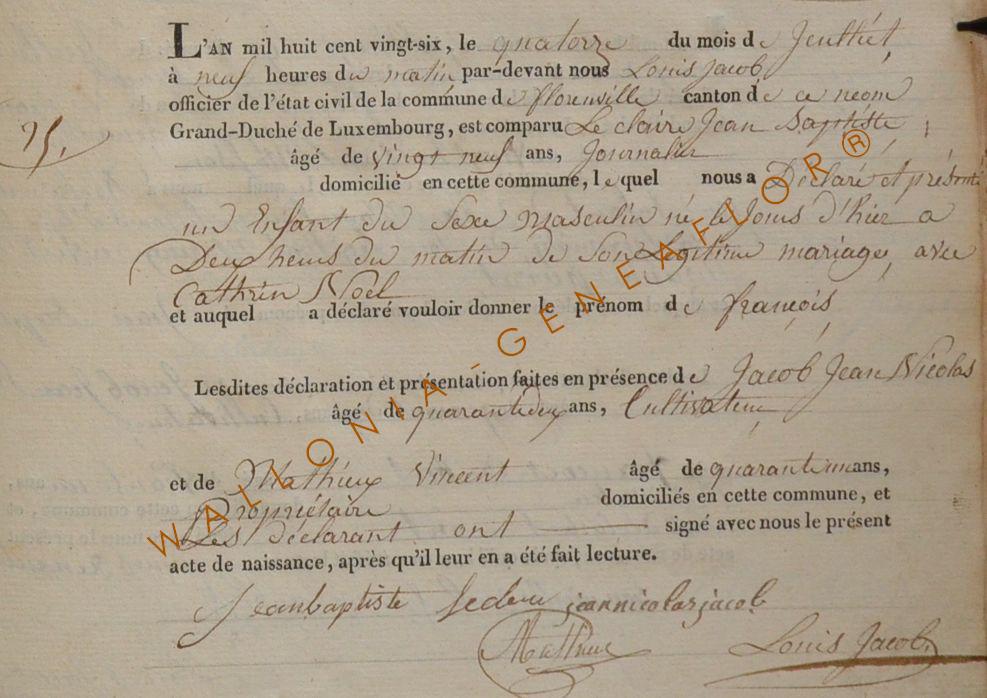 L'AN mil huit cent vingt-six, le quatorze du mois de Jeullet
à neuf heures du matin par-devant nous Louis Jacob
officier de l'état civil de la commune de florenville canton de ce neom
Grand-Duché de Luxembourg, est comparu Le claire Jean Baptiste,
25.
âgé de vingt neuf ans, Journalier
domicilié en cette commune, lequel nous a Déclaré et présenté
un Enfant du Sexe masculin né le Jours d'hier a
Deux heurs du matin de Son Légitime mariage, avec
Cathrin Noël
et auquel a déclaré vouloir donner le prénom de françois
Lesdites déclaration et présentation faites en présence de Jacob Jean Nicolas
âgé de quarantedeux ans, Cultivateur,
et de Mathieux Vincent âgé de quarante un ans,
Propriétaire domiciliés en cette commune, et
Les Déclarant ont signé avec nous le présent
acte de naissance, après qu'il leur en a été fait lecture.
Jeanbaptiste jeannicolas jacob
Mathieux Louis Jacob
WALLONIA-GENEAFLOR®